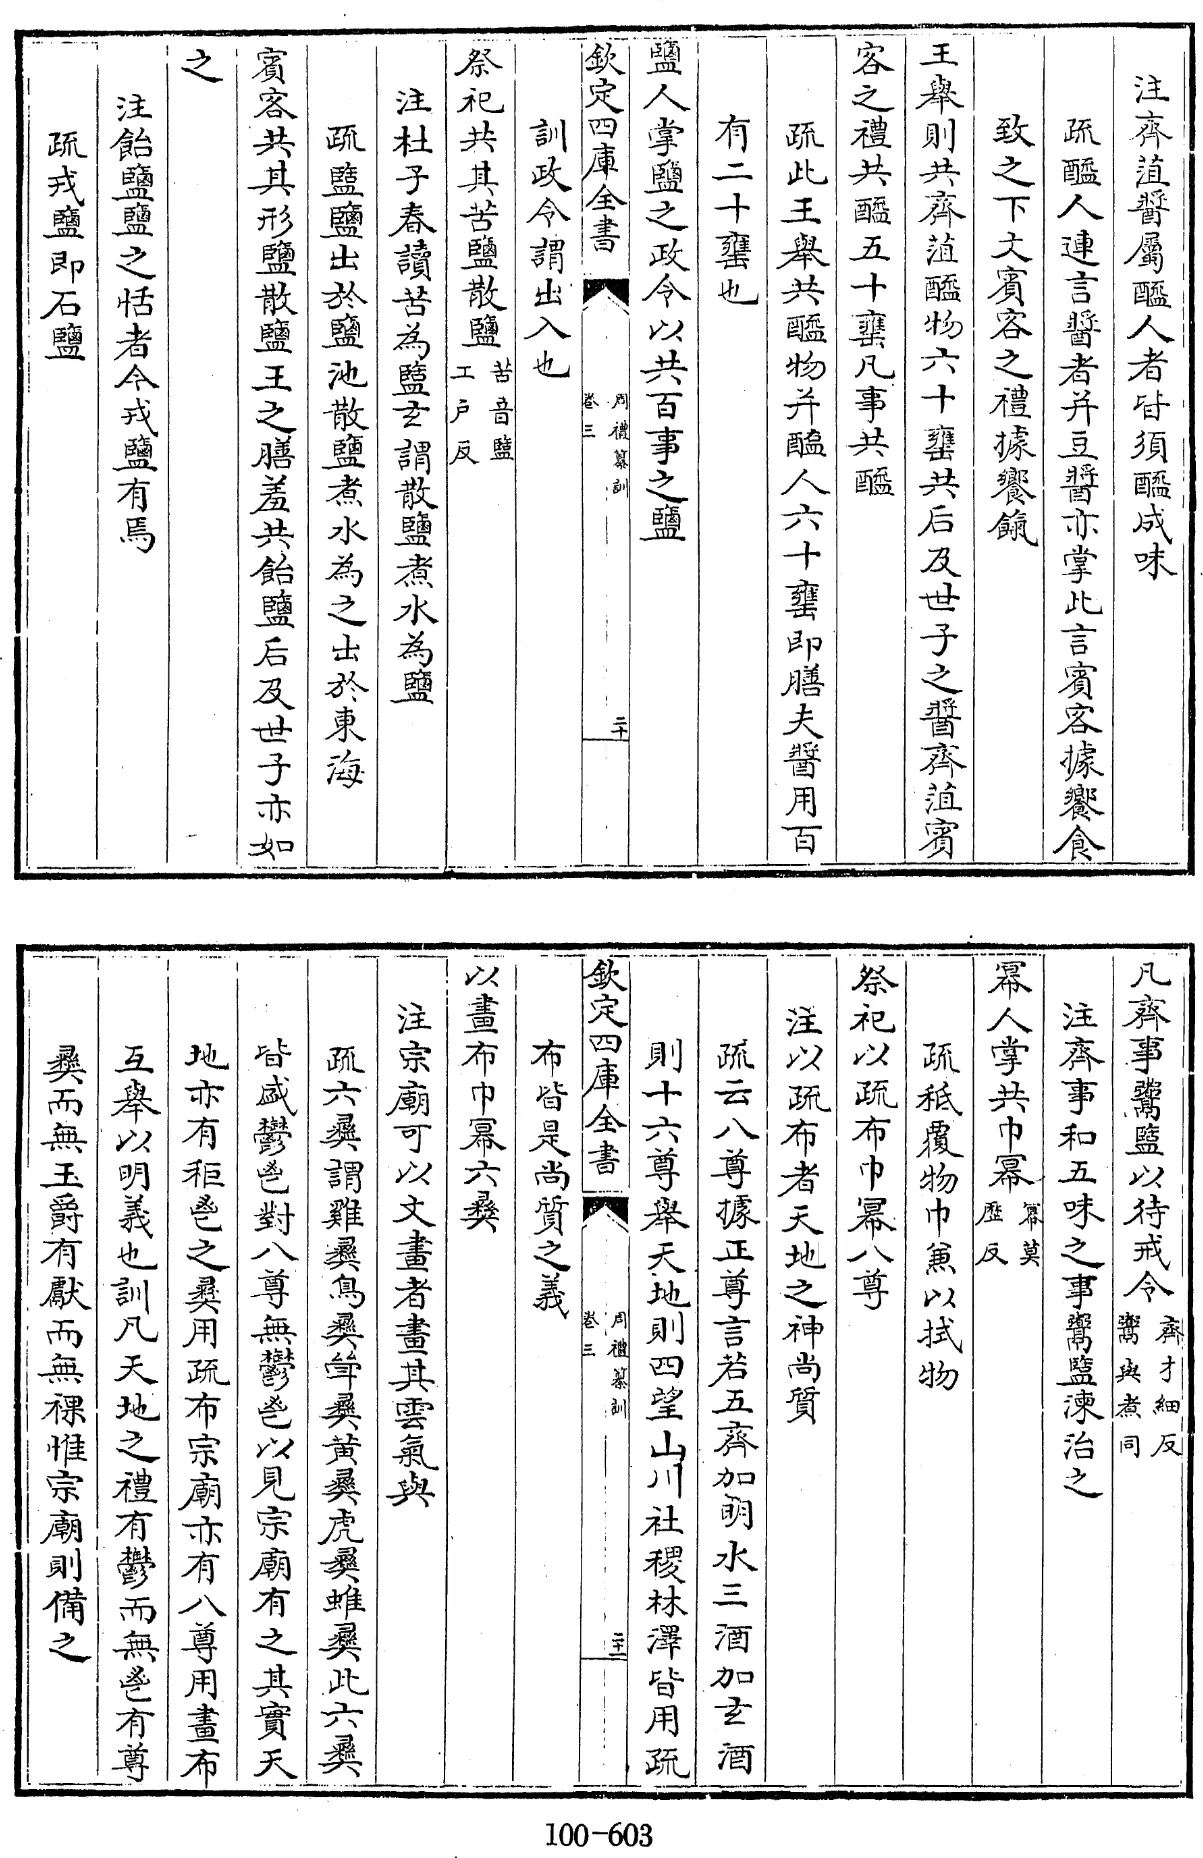 注齊菹醬屬醯人者皆須醯成味
疏醯人連言醬者并豆醬亦掌此言賓客據饗食
致之下文賓客之禮據饔餼
王舉則共齊菹醯物六十罋共后及世子之醬齊菹賓
客之禮共醯五十罋凡事共醯
疏此王舉共醯物并醢人六十罋即膳夫醬用百
有二十罋也
鹽人掌鹽之政令以共百事之鹽
欽定四庫全書
周禮纂訓
卷三
二十
訓政令謂出入也
祭祀共其苦鹽散鹽
苦音盬
工戶反
注杜子春讀苦為盬玄謂散鹽煮水為鹽
疏盬鹽出於鹽池散鹽煮水為之出於東海
賓客共其形鹽散鹽王之膳羞共飴鹽后及世子亦如
之
注飴鹽鹽之恬者今戎鹽有焉
疏戎鹽即石鹽
凡齊事鬻盬以待戒令
齊才細反
鬻與煮同
注齊事和五味之事鬻盬湅治之
冪人掌共巾冪
冪莫
歷反
疏秪覆物巾兼以拭物
祭祀以疏布巾冪八尊
注以疏布者天地之神尚質
疏云八尊據正尊言若五齊加明水三酒加玄酒
則十六尊舉天地則四望山川社稷林澤皆用疏
欽定四庫全書
周禮纂訓
卷三
二十一
布皆是尚質之義
以畫布巾冪六彝
注宗廟可以文畫者畫其雲氣與
疏六彝謂雞彝鳥彝斝彝黃彝虎彝蜼彝此六彝
皆盛鬱鬯對八尊無鬱鬯以見宗廟有之其實天
地亦有秬鬯之彝用疏布宗廟亦有八尊用畫布
互舉以明義也訓凡天地之禮有鬱而無鬯有尊
彝而無玉爵有獻而無祼惟宗廟則備之
100-603